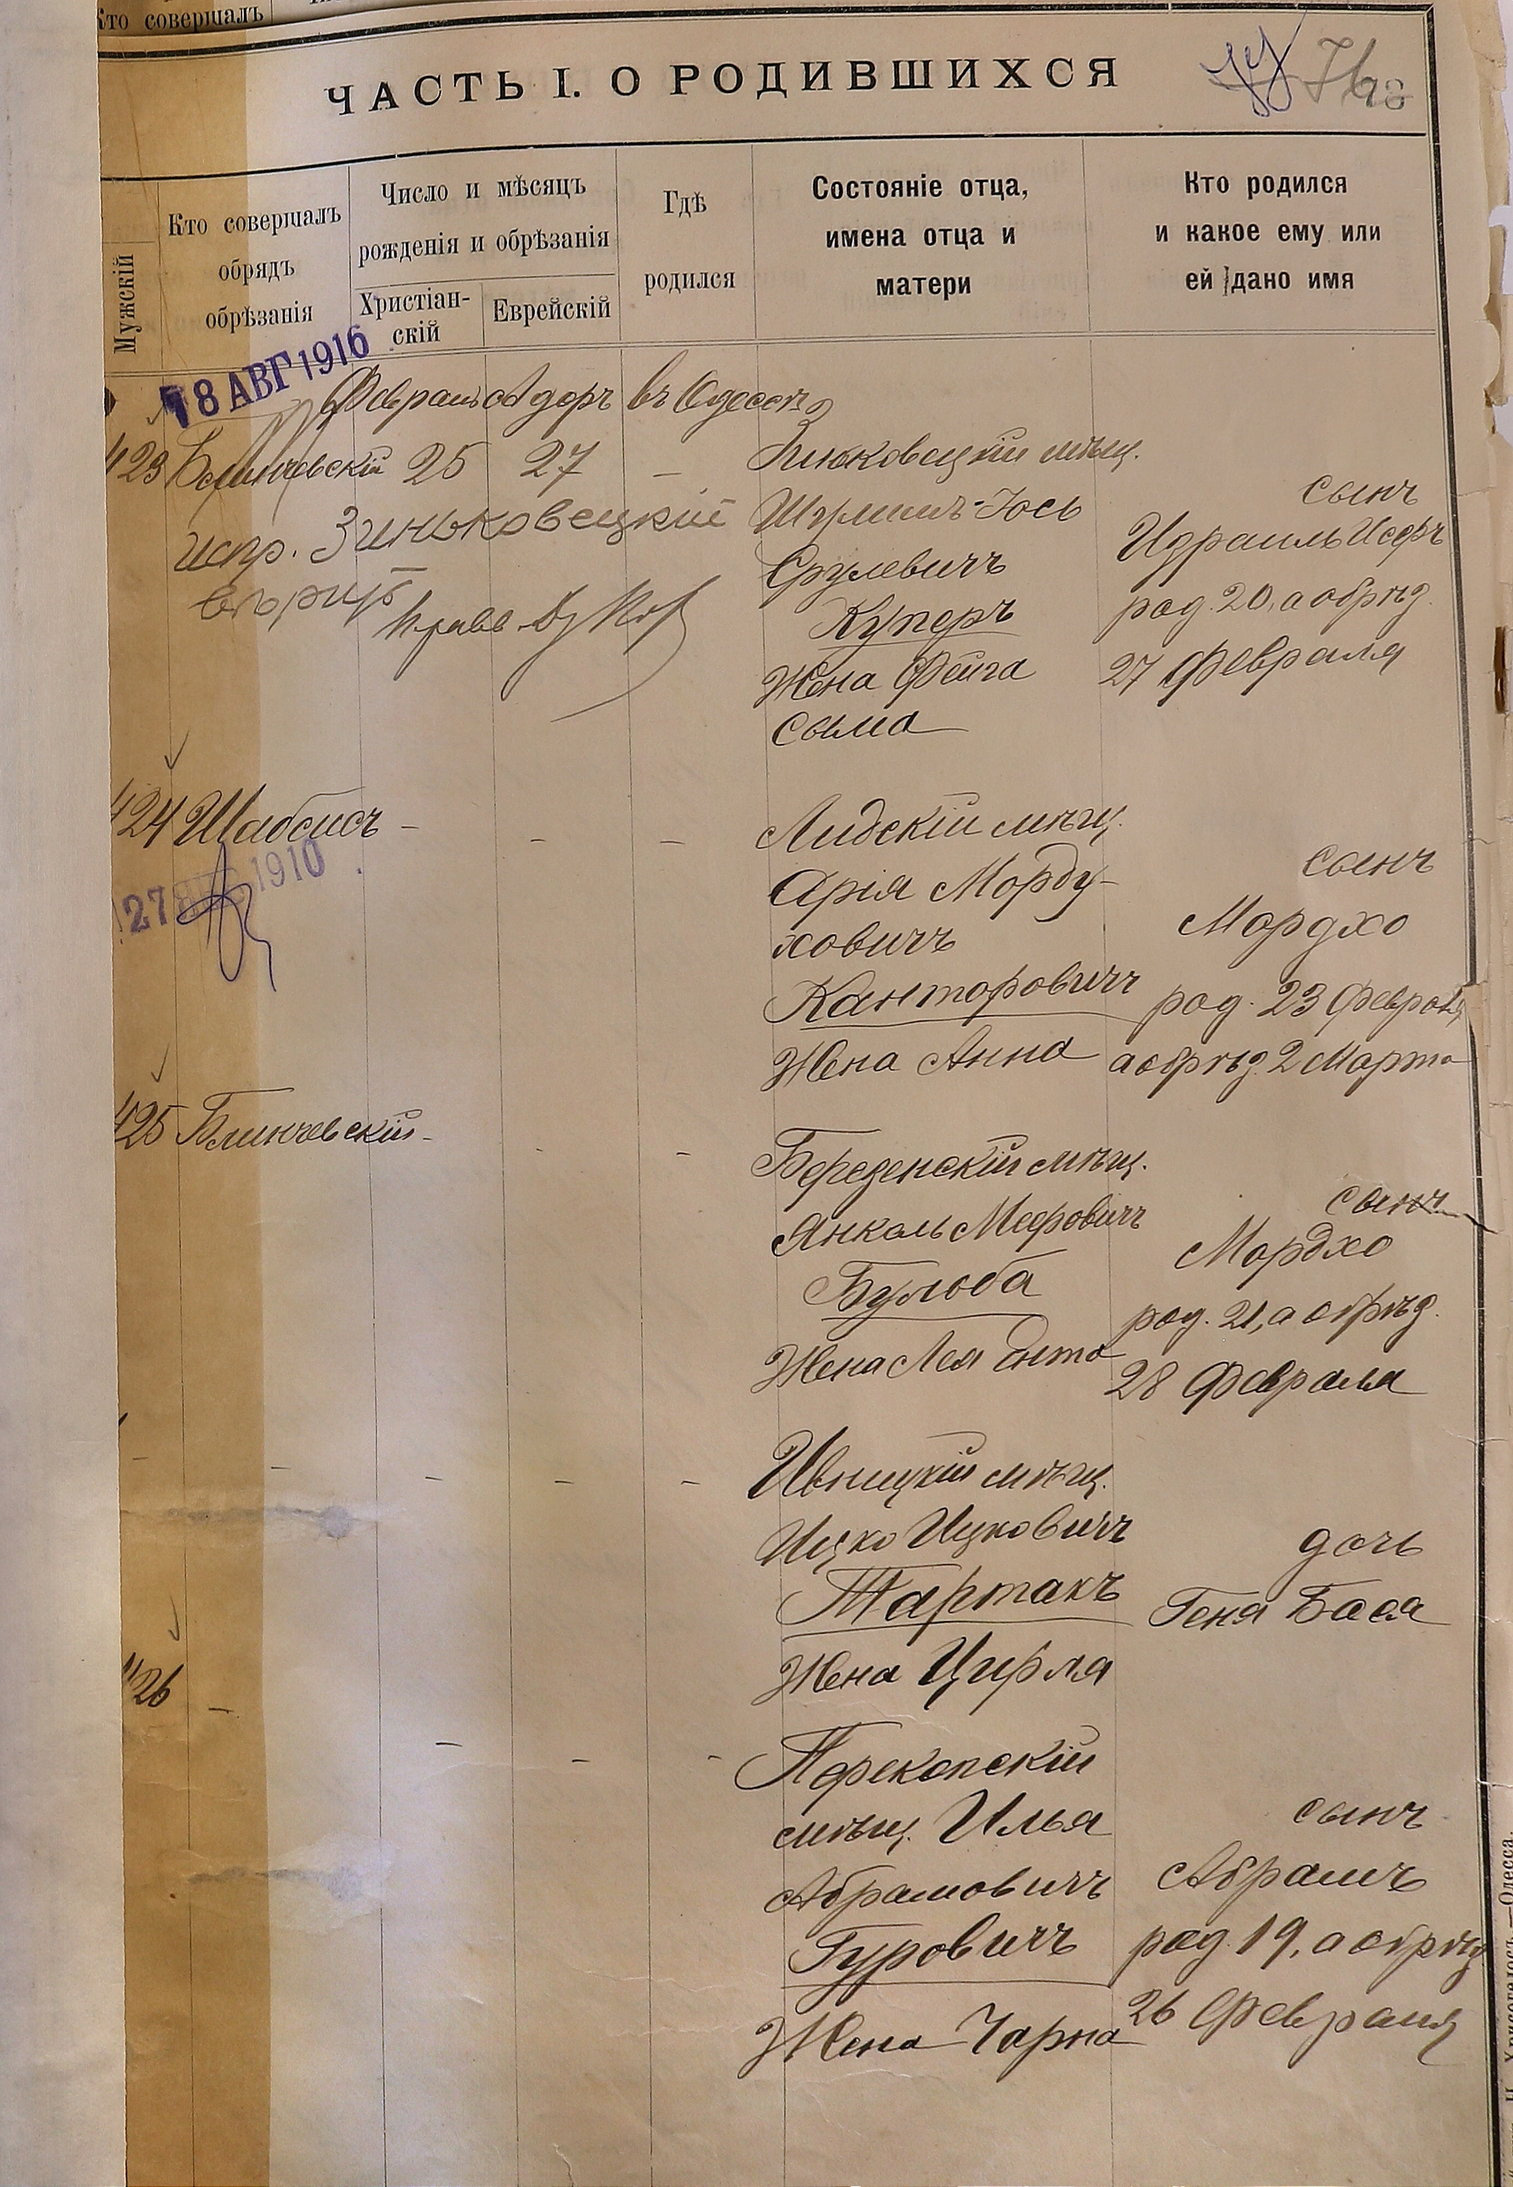 Кто совершалъ
ЧАСТЬ I. О РОДИВШИХСЯ
76
Мужскій
Кто совершалъ
обрядъ
обрѣзанія
Число и мѣсяцъ
рожденія и обрѣзанія
Христіан-
скій
Еврейскій
Гдѣ
родился
Состояніе отца,
имена отца и
матери
Кто родился
и какое ему или
ей дано имя
18 АВГ 1916
Февраль Адоръ въ Одессѣ
423 Блинчевскій 25 27 —
испр. Зиньковецкій
вѣрить
Зиньковецкій мѣщ.
Шулимъ-Іось
Срулевичъ
Куперъ
Жена Фейга
Сыма
сынъ
Израиль Исеръ
род. 20, а обрѣз.
27 Февраля
424 Шабсисъ - - -
27 1910
Лидскій мѣщ.
Арія Морду-
ховичъ
Канторовичъ
Жена Анна
сынъ
Мордхо
род. 23 Февраля
а обрѣз. 2 Марта
425 Блинчевскій - - -
Березенскій мѣщ.
Янкель Мееровичъ
Булоба
Жена Лея
сынъ
Мордхо
род. 21, а обрѣз.
28 Февраля
- - - - -
Ивницкій мѣщ.
Ицко Ицковичъ
Тартакъ
Жена Цирля
дочь
Геня Бася
426 - - - -
Перекопскій
мѣщ. Илья
Абрамовичъ
Гуровичъ
Жена Чарна
сынъ
Абрамъ
род. 19, а обрѣз
26 Февраля
Одесса.